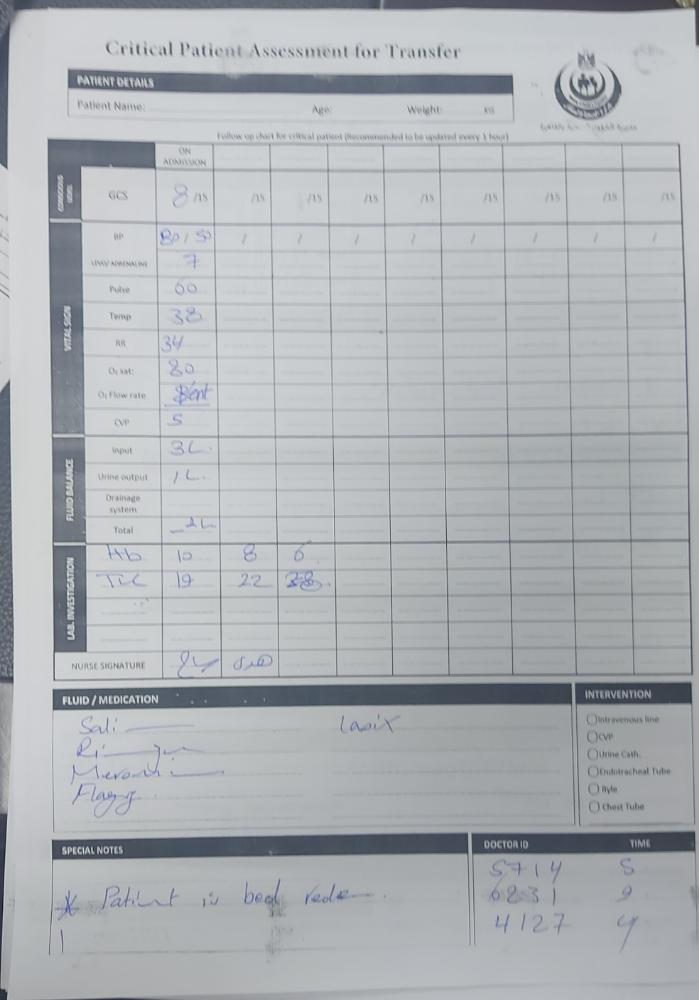 Critical Patient Assessment for Transfer
PATIENT DETAILS
Patient Name: Age: Weight: KG
Follow up chart for critical patient (Recommended to be updated every 1 hour)
ON ADMISSION
CONSCIOUS LEVEL
GCS 8 /15 /15 /15 /15 /15 /15 /15 /15 /15
VITAL SIGN
BP 80 / 50 / / / / / / / /
LEVO/ ADRENALINE 7
Pulse 60
Temp 38
RR 34
O₂ sat: 80
O₂ Flow rate
CVP 5
FLUID BALANCE
Input 3L
Urine output 1L
Drainage system
Total
LAB. INVESTIGATION
Hb 10 8 6
TLC 19 22 38
NURSE SIGNATURE
FLUID / MEDICATION
Lasix
Flagy
INTERVENTION
Intravenous line
CVP
Urine Cath.
Endotracheal Tube
Ryle
Chest Tube
SPECIAL NOTES
* Patient is bed
DOCTOR ID TIME
5714 5
6231 9
4127 4